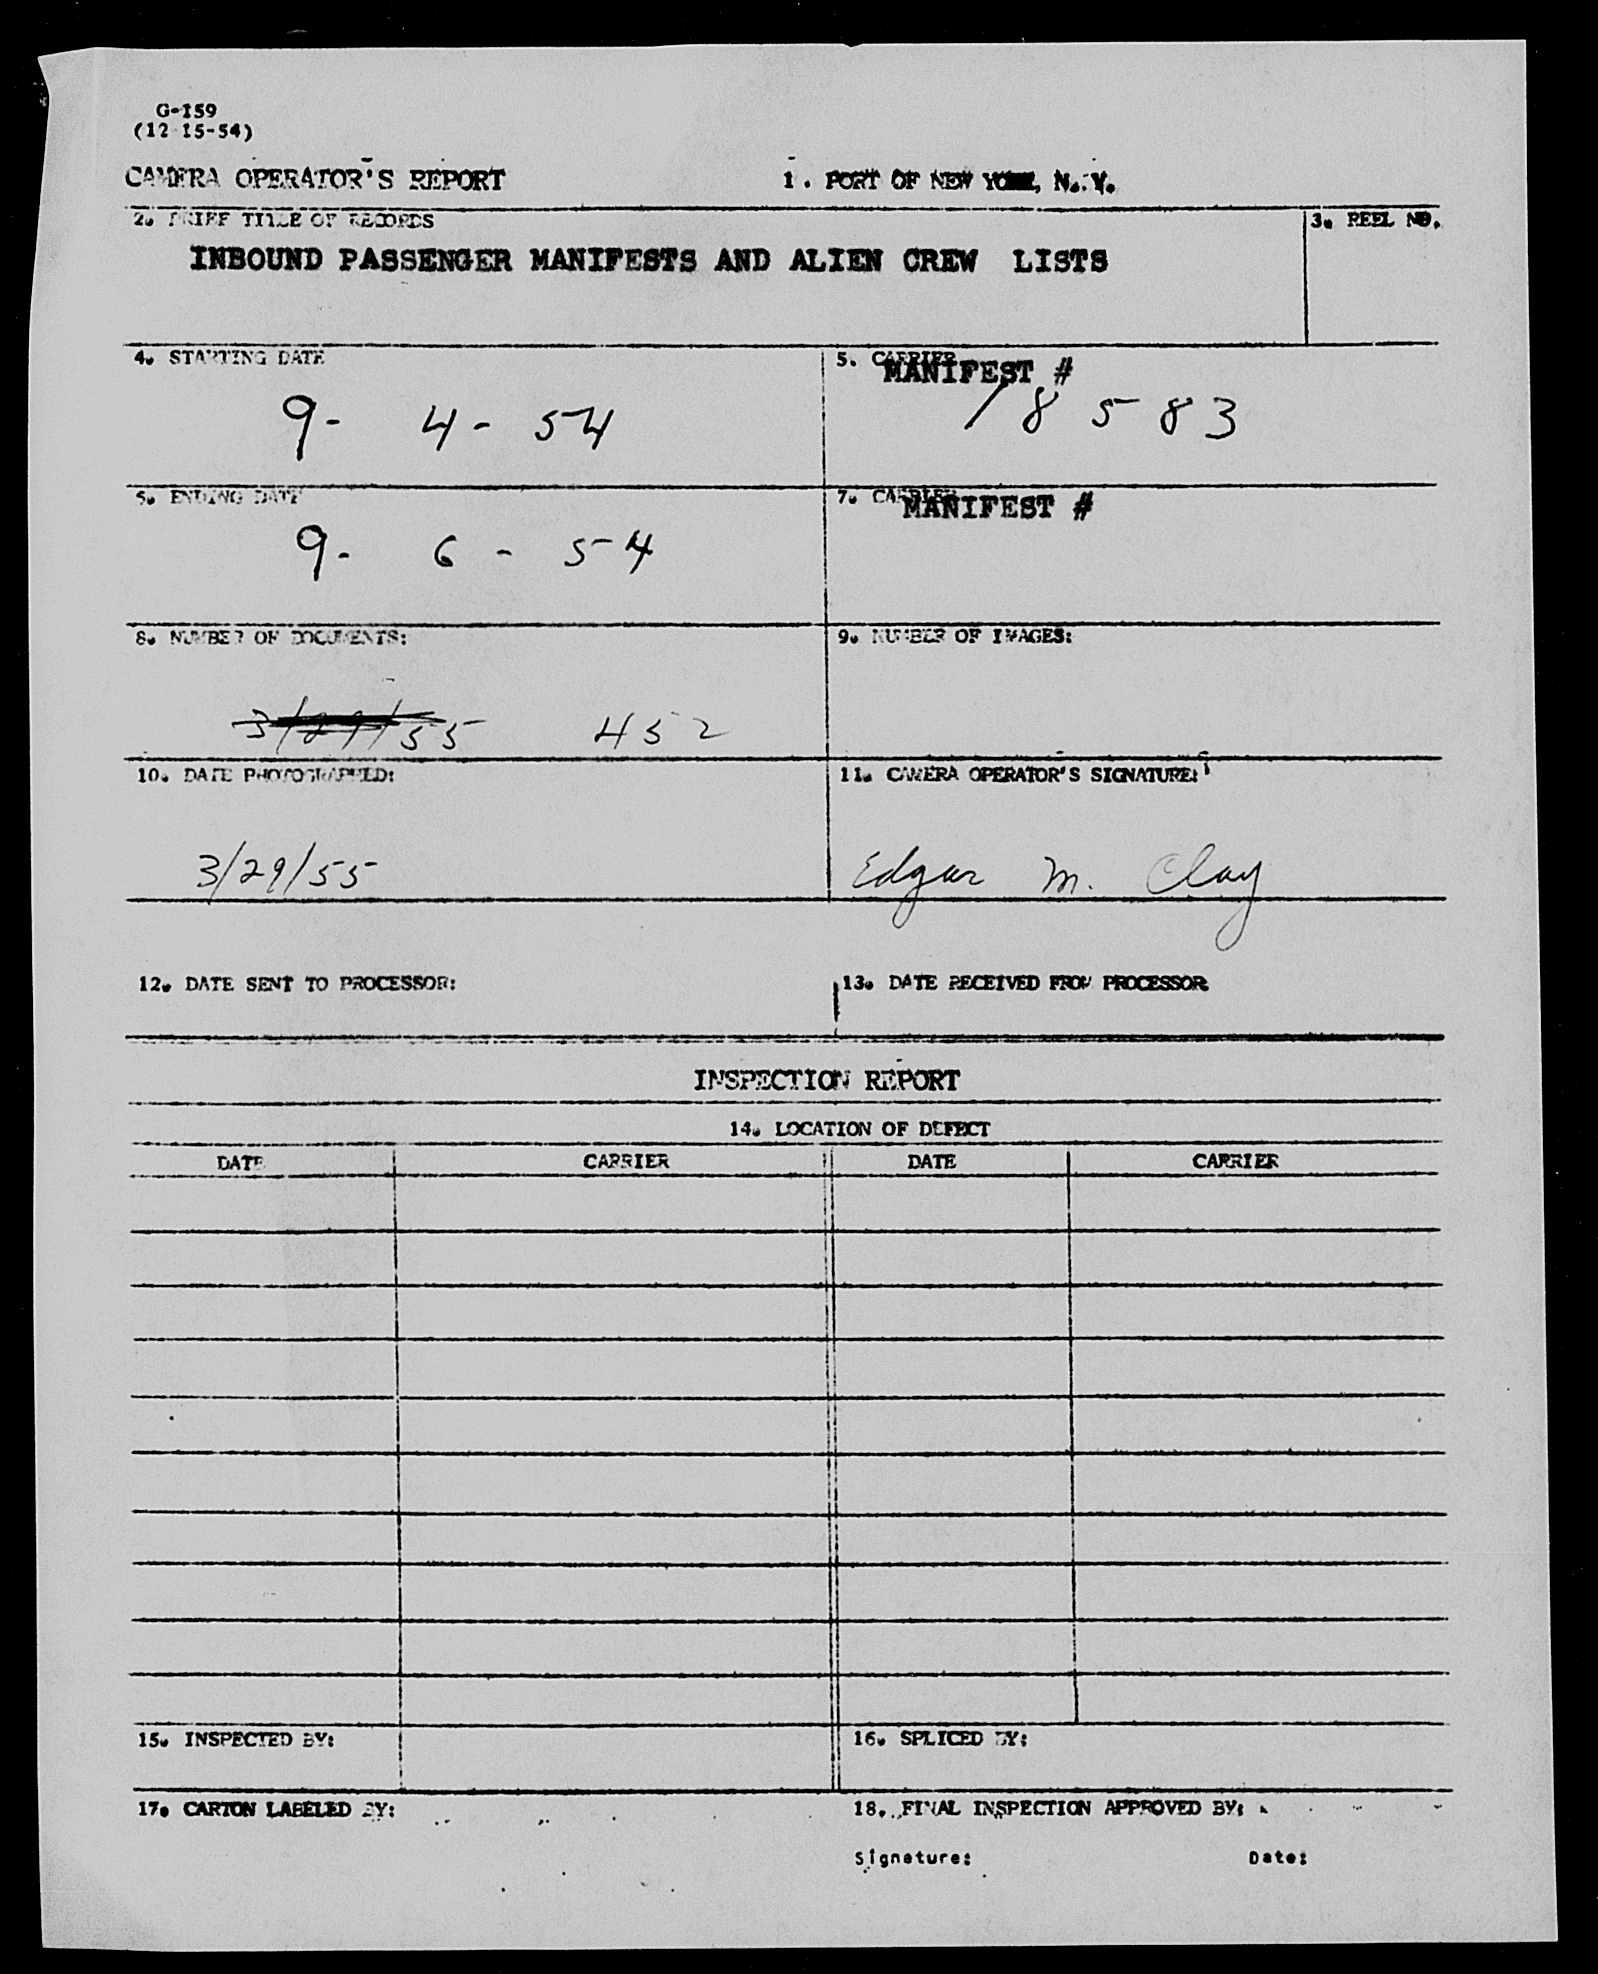 G-159
(12-15-54)
CAMERA OPERATOR'S REPORT 1. PORT OF NEW YORK, N. Y.
2. BRIEF TITLE OF RECORDS 3. REEL NO.
INBOUND PASSENGER MANIFESTS AND ALIEN CREW LISTS
4. STARTING DATE 5. CARRIER
MANIFEST #
9- 4- 54 18583
5. ENDING DATE 7. CARRIER
MANIFEST #
9- 6 - 54
8. NUMBER OF DOCUMENTS: 9. NUMBER OF IMAGES:
3/29/55 452
10. DATE PHOTOGRAPHED: 11. CAMERA OPERATOR'S SIGNATURE:
3/29/55 Edgar M. Clay
12. DATE SENT TO PROCESSOR: 13. DATE RECEIVED FROM PROCESSOR
INSPECTION REPORT
14. LOCATION OF DEFECT
DATE CARRIER DATE CARRIER
15. INSPECTED BY: 16. SPLICED BY:
17. CARTON LABELED BY: 18. FINAL INSPECTION APPROVED BY:
Signature: Date: